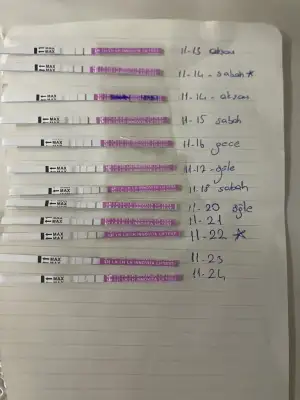 MAX 11-13 akşam
MAX 11-14 - sabah *
MAX 11-14 - akşam
MAX 11-15 sabah
MAX 11-16 gece
MAX 11-17 - öğle
MAX 11-18 sabah
MAX 11-20 öğle
MAX 11-21
MAX 11-22 *
MAX 11-23
MAX 11-24